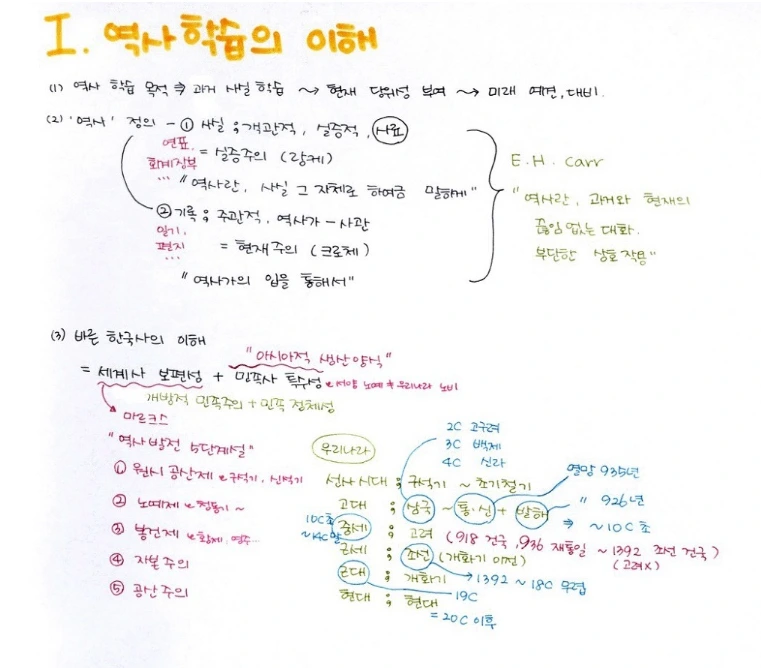 I. 역사 학습의 이해
(1) 역사 학습 목적 ⇒ 과거 사실 학습 ~> 현재 당위성 부여 ~> 미래 예견, 대비.
(2) '역사' 정의 - ① 사실 ; 객관적, 실증적, 사료
연표, 회계장부 ...
= 실증주의 (랑케)
"역사란, 사실 그 자체로 하여금 말하게"
② 기록 ; 주관적, 역사가 - 사관
일기, 편지 ...
= 현재주의 (크로체)
"역사가의 입을 통해서"
E.H. Carr
"역사란, 과거와 현재의
끊임 없는 대화.
부단한 상호작용"
(3) 바른 한국사의 이해
"아시아적 생산양식"
= 세계사 보편성 + 민족사 특수성 서양 노예 ≠ 우리나라 노비
개방적 민족주의 + 민족 정체성
마르크스
"역사발전 5단계설"
① 원시 공산제 구석기, 신석기
② 노예제 청동기 ~
③ 봉건제
④ 자본주의
⑤ 공산주의
우리나라
2C 고구려
3C 백제
4C 신라
선사시대 ; 구석기 ~ 초기철기
멸망 935년
고대 ; 삼국 ~ 통·신 + 발해
" 926년
⇒ ~10C 초
10C초 ~14C말
중세 ; 고려 (918 건국, 936 재통일 ~ 1392 조선 건국)
(고려X)
근세 ; 조선 (개화기 이전)
→ 1392 ~ 18C 무렵
근대 ; 개화기
19C
현대 ; 현대
= 20C 이후